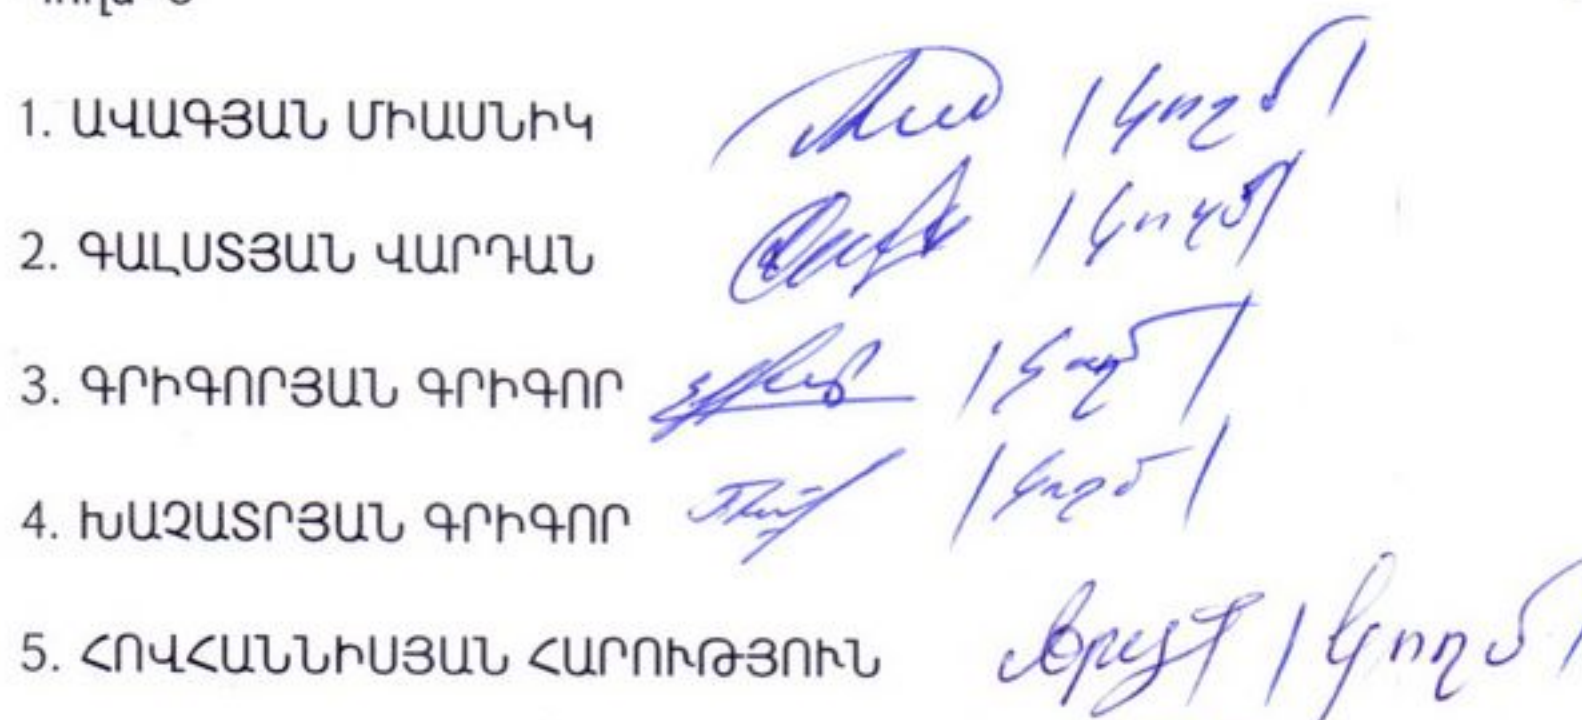 1. ԱՎԱԳՅԱՆ ՄԻԱՍՆԻԿ /կողմ/
2. ԳԱԼՍՏՅԱՆ ՎԱՐԴԱՆ /կողմ/
3. ԳՐԻԳՈՐՅԱՆ ԳՐԻԳՈՐ /կողմ/
4. ԽԱՉԱՏՐՅԱՆ ԳՐԻԳՈՐ /կողմ/
5. ՀՈՎՀԱՆՆԻՍՅԱՆ ՀԱՐՈՒԹՅՈՒՆ /կողմ/